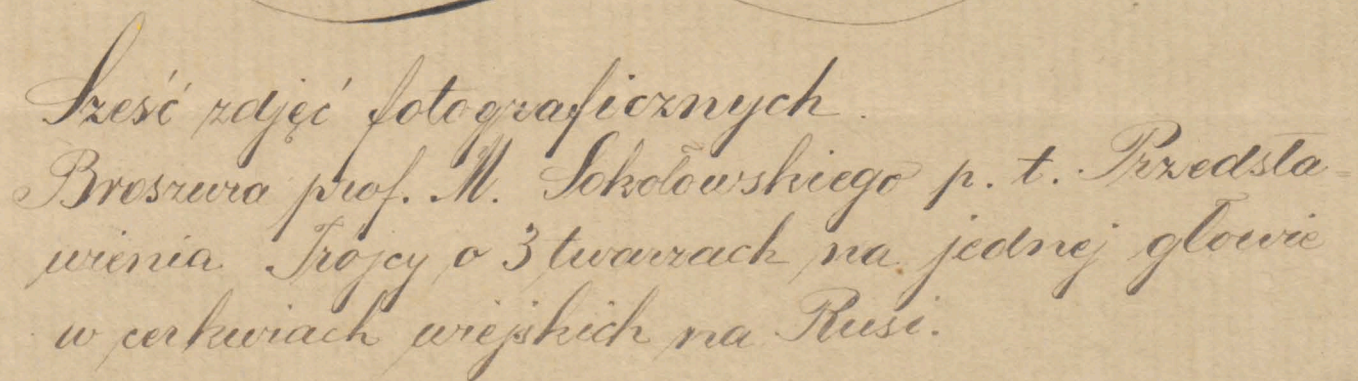 Sześć zdjęć fotograficznych.
Broszura prof. M. Sokołowskiego p. t. Przedsta=
wienia Trójcy o 3 twarzach na jednej głowie
w cerkwiach wiejskich na Rusi.